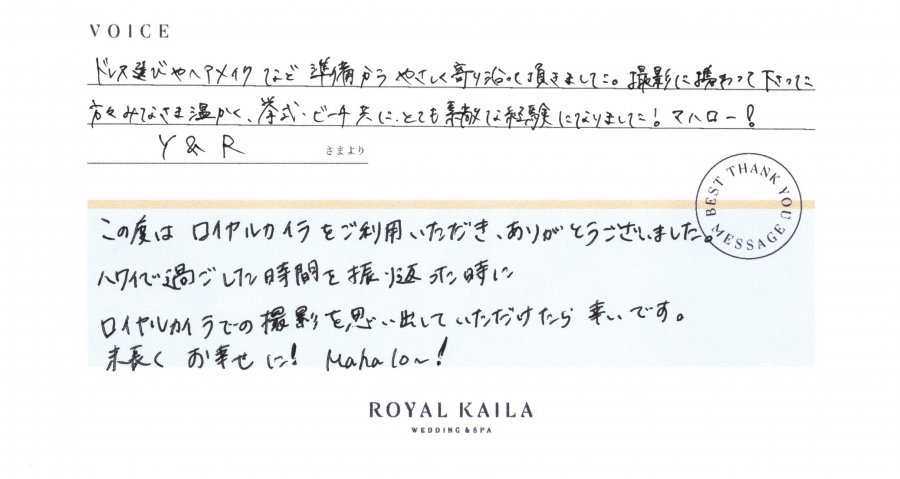 VOICE
ドレス選びやヘアメイクなど準備からやさしく寄り沿って頂きました。撮影に携わって下さった
方々みなさま温かく、挙式・ビーチ共に、とても素敵な経験になりました！マハロー！
Y & R さまより
BEST THANK YOU MESSAGE
この度は ロイヤルカイラをご利用いただき、ありがとうございました。
ハワイで過ごした時間を振り返った時に
ロイヤルカイラでの撮影を思い出していただけたら幸いです。
末長く お幸せに！ Mahalo~！
ROYAL KAILA
WEDDING & SPA